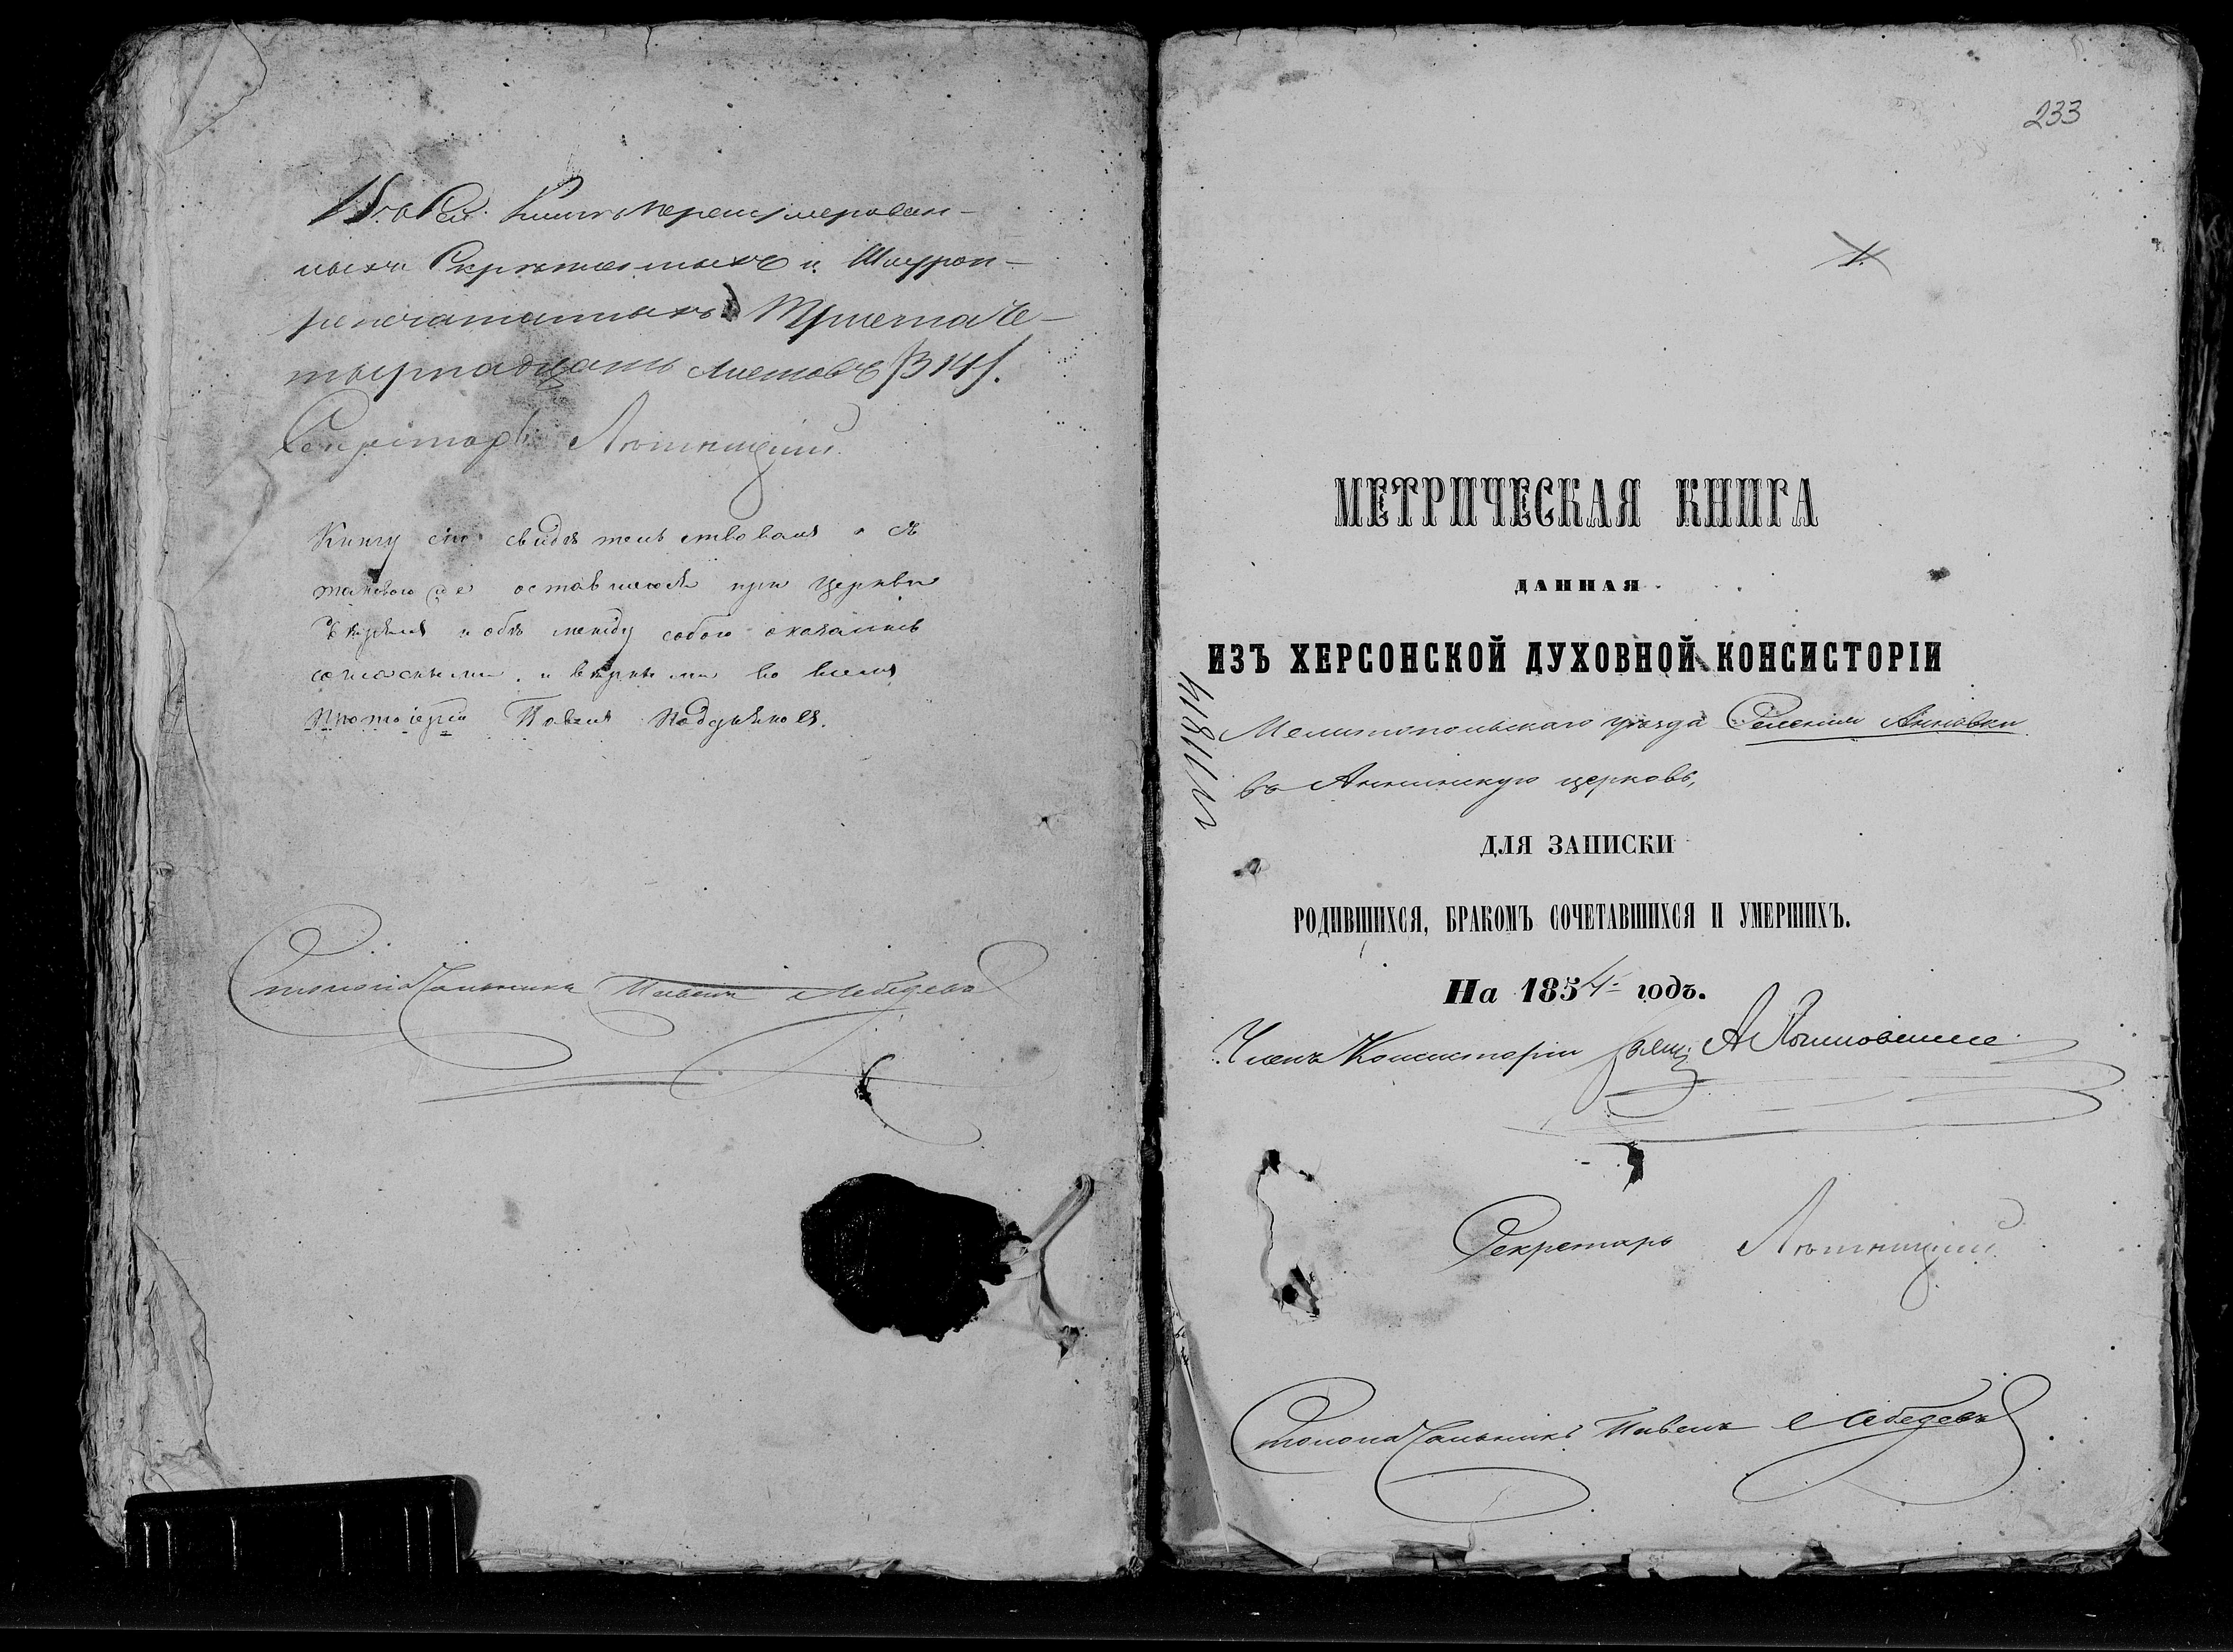 Въ сей Книгѣ перенумерован-
ныхъ Скрѣпленныхъ и Шнуроп-
репечатанныхъ Триста че-
тырнадцать листовъ /314/.
Секретарь
Книгу сію свидѣтельствовалъ и съ
таковою же оставшеюся при церкви
и обѣ между собою оказались
согласными и вѣрными во всемъ
Протоіерей Павелъ
Столоначальникъ Павелъ Лебедевъ
233
1.
МЕТРИЧЕСКАЯ КНИГА
ДАННАЯ
ИЗЪ ХЕРСОНСКОЙ ДУХОВНОЙ КОНСИСТОРІИ
№ 11844
Мелитопольскаго уѣзда Селенія Анновки
въ Аннинскую церковь,
ДЛЯ ЗАПИСКИ
РОДИВШИХСЯ, БРАКОМЪ СОЧЕТАВШИХСЯ И УМЕРШИХЪ.
На 1854 годъ.
Членъ Консисторіи
Секретарь
Столоначальникъ Павелъ Лебедевъ